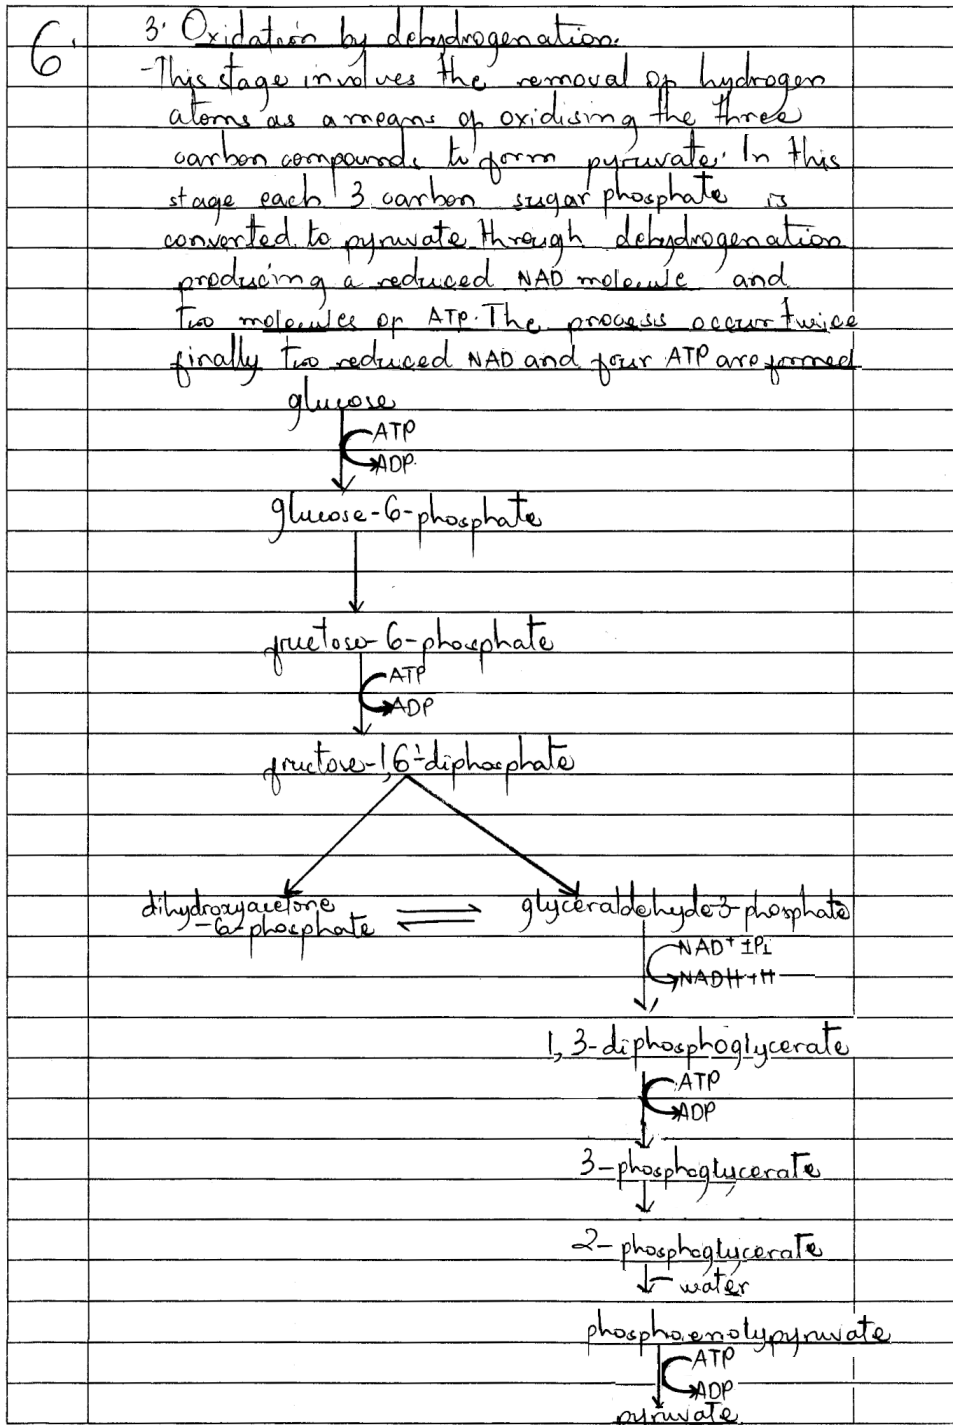 6.
3. Oxidation by dehydrogenation.
-This stage involves the removal of hydrogen
atoms as a means of oxidising the three
carbon compounds to form pyruvate. In this
stage each 3 carbon sugar phosphate is
converted to pyruvate through dehydrogenation
producing a reduced NAD molecule and
two molecules of ATP. The process occur twice
finally two reduced NAD and four ATP are formed
glucose
ATP
ADP.
glucose-6-phosphate
fructose-6-phosphate
ATP
ADP
fructose-1,6-diphosphate
dihydroxyacetone
-6-phosphate
glyceraldehyde-3-phosphate
NAD+ ±Pi
NADH+H
1,3-diphosphoglycerate
ATP
ADP
3-phosphoglycerate
2-phosphoglycerate
- water
phosphoenolypyruvate
ATP
ADP
pyruvate